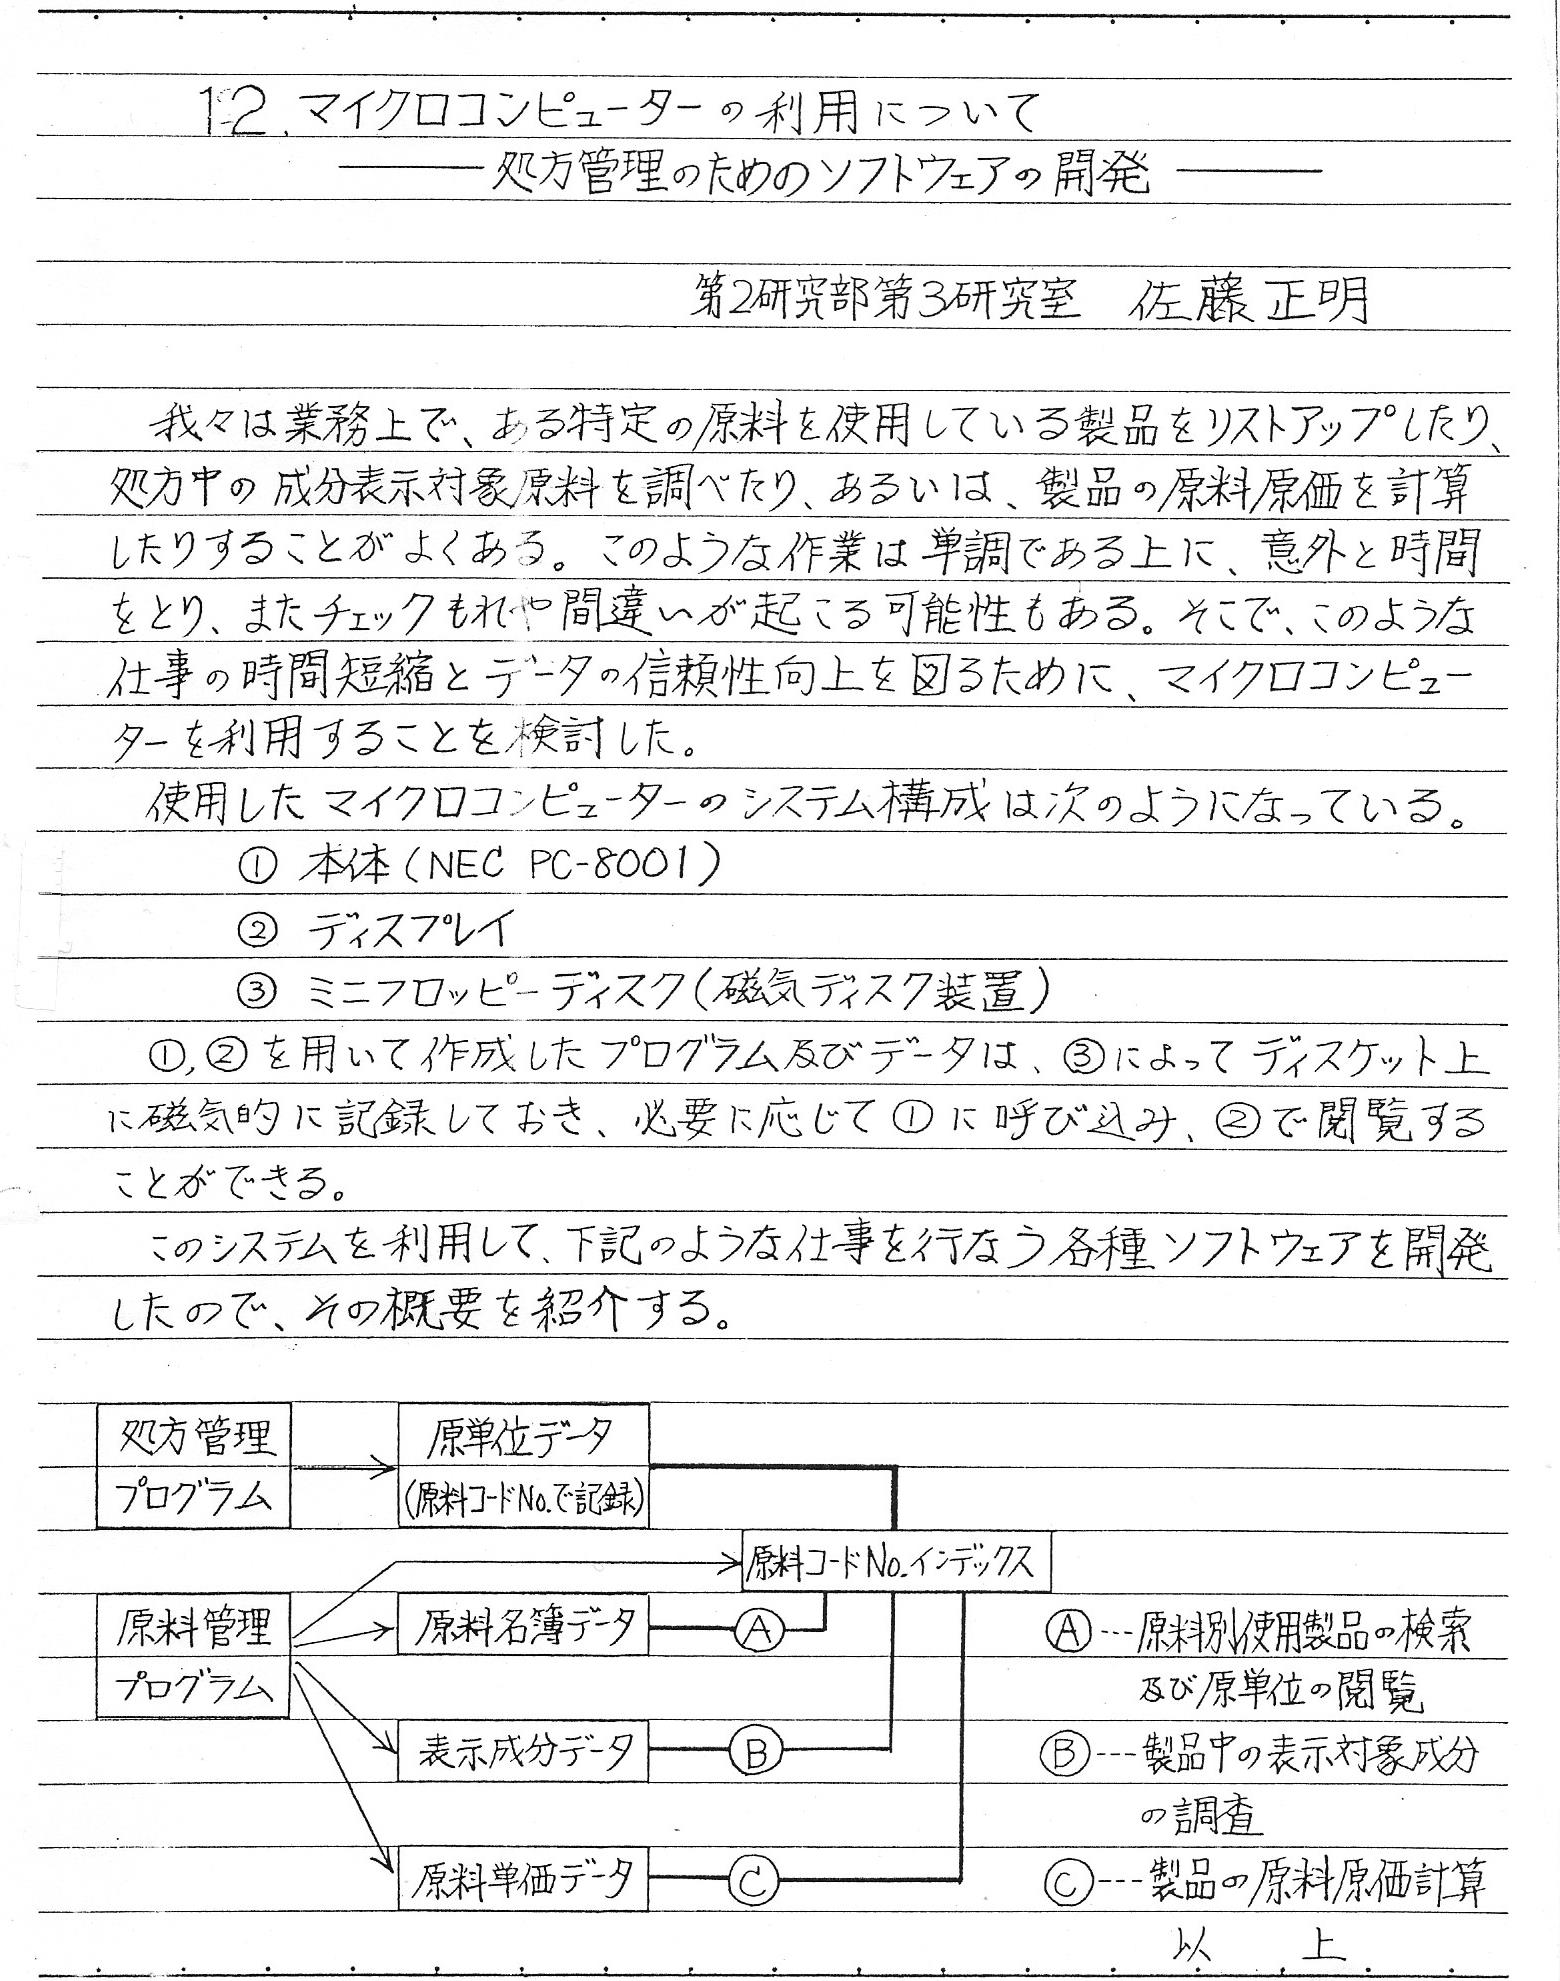 12.マイクロコンピューターの利用について
——処方管理のためのソフトウェアの開発——
第2研究部第3研究室 佐藤正明
我々は業務上で、ある特定の原料を使用している製品をリストアップしたり、
処方中の成分表示対象原料を調べたり、あるいは、製品の原料原価を計算
したりすることがよくある。このような作業は単調である上に、意外と時間
をとり、またチェックもれや間違いが起こる可能性もある。そこで、このような
仕事の時間短縮とデータの信頼性向上を図るために、マイクロコンピュー
ターを利用することを検討した。
使用したマイクロコンピューターのシステム構成は次のようになっている。
① 本体(NEC PC-8001)
② ディスプレイ
③ ミニフロッピーディスク(磁気ディスク装置)
①,②を用いて作成したプログラム及びデータは、③によってディスケット上
に磁気的に記録しておき、必要に応じて①に呼び込み、②で閲覧する
ことができる。
このシステムを利用して、下記のような仕事を行なう各種ソフトウェアを開発
したので、その概要を紹介する。
処方管理
プログラム
原単位データ
(原料コードNo.で記録)
原料コードNo.インデックス
原料管理
プログラム
原料名簿データ
Ⓐ
表示成分データ
Ⓑ
原料単価データ
Ⓒ
Ⓐ---原料別使用製品の検索
及び原単位の閲覧
Ⓑ---製品中の表示対象成分
の調査
Ⓒ---製品の原料原価計算
以 上